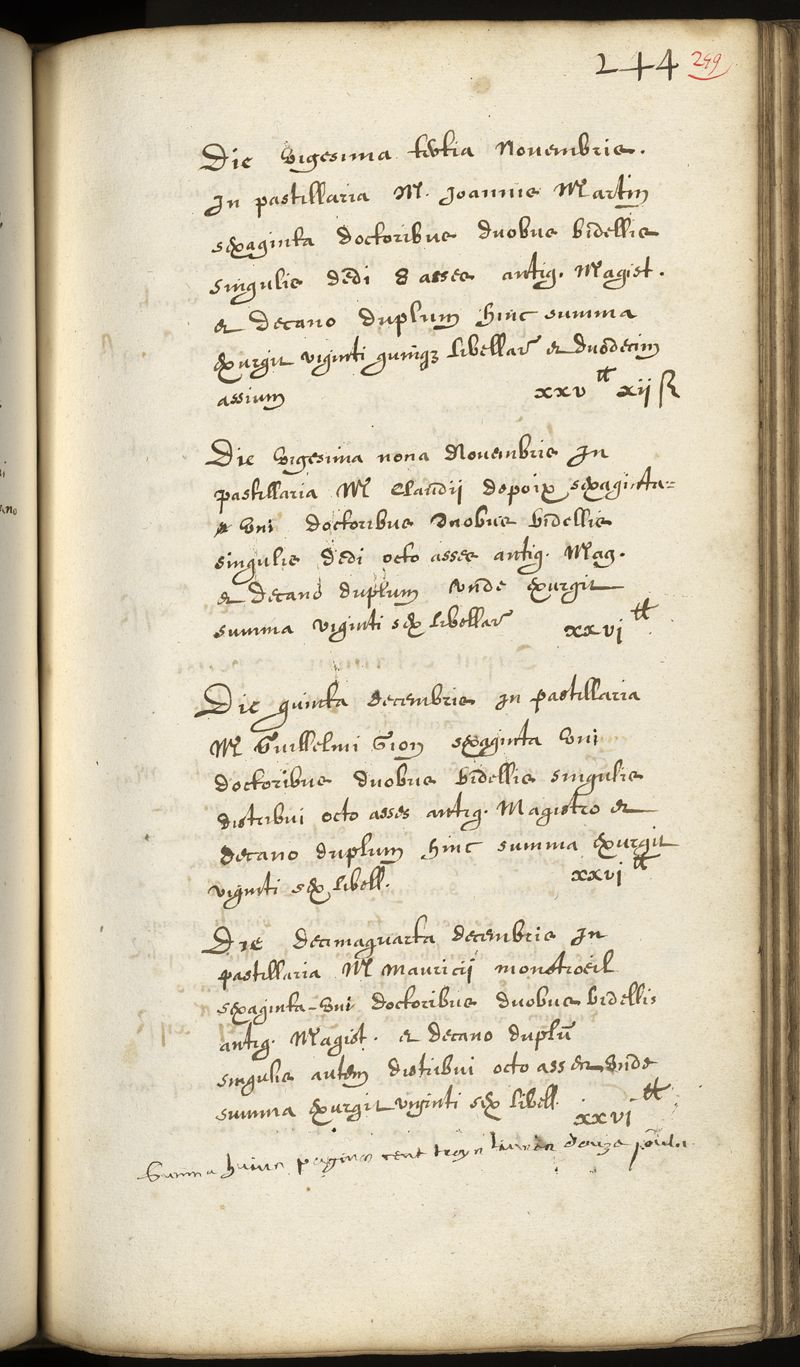 244 249
Die Vigesima tertia Novembris.
In pastillaria M. Joannis Martin
sexaginta doctoribus duobus bidellis
singulis dedi 8 asses antiq. Magist.
et decano duplum hinc summa
exurgit viginti quinq3 libellar et duodecim
assium xxv tt xij ß
Die Vigesima nona Novembris In
pastillaria M Claudij depoix sexaginta=
Uni doctoribus duobus bidellis
singulis dedi octo asses antiq. Mag.
et decano duplum Unde exurgit
summa viginti sex libellar xxvj tt
Die quinta decembris in pastillaria
M Guillelmi Gion sexaginta Uni
doctoribus duobus bidellis singulis
distribui octo asses antiq. Magistro et
decano duplum hinc summa exurgit
viginti sex libell. xxvj tt
Die decimaquarta decembris In
pastillaria M Mauricij monstroeil
sexaginta-Uni doctoribus duobus bidellis
antiq. Magist. et decano duplū
singulis autem distribui octo asses Unde
summa exurgit viginti sex libell. xxvj tt
Summa huius pagine cent troys livres douze